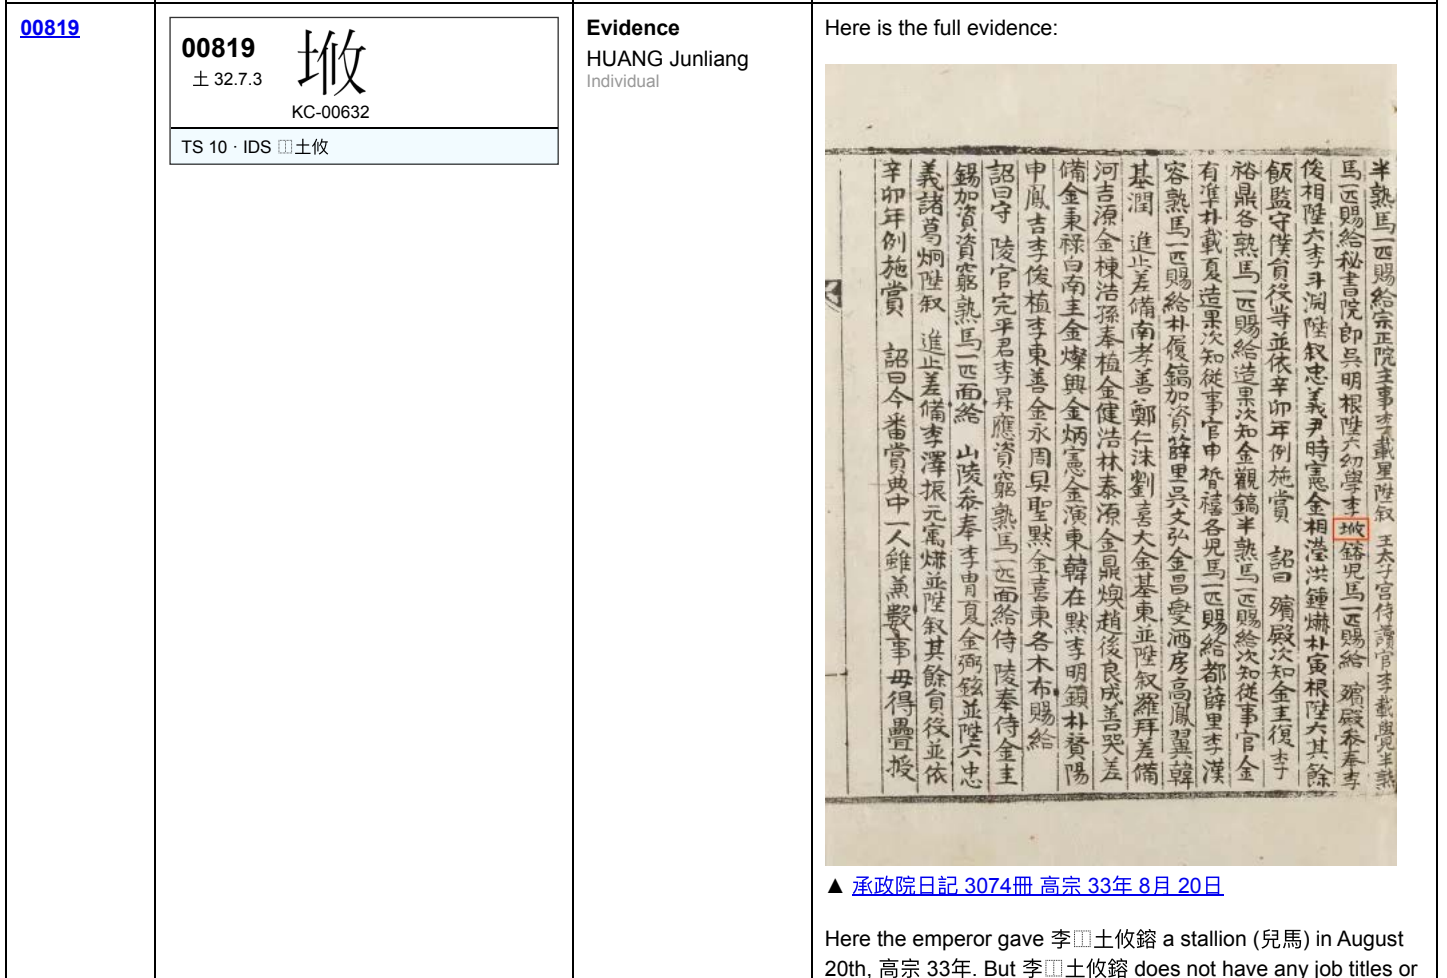 00819
00819
土 32.7.3
⿰土攸
KC-00632
TS 10 · IDS ⿰土攸
Evidence
HUANG Junliang
Individual
Here is the full evidence:
半熟馬一匹賜給宗正院主事李載星陞叙 王太子宮侍讀官李載覺半熟
馬一匹賜給秘書院郎吳明根陞六幼學李⿰土攸鎔兒馬一匹賜給 殯殿叅奉李
俊相陞六李斗淵陞叙忠義尹時憲金相瀅洪鍾爀朴寅根陞六其餘
飯監守僕負役等並依辛卯年例施賞 詔曰 殯殿次知金圭復李
裕鼎各熟馬一匹賜給造果次知金觀鎬半熟馬一匹賜給次知從事官金
有準朴載夏造果次知從事官申禧各兒馬一匹賜給都薛里李漢
容熟馬一匹賜給朴履鎬加資薛里吳文弘金昌燮酒房高鳳翼韓
基潤 進止差備南孝善鄭仁洙劉喜大金基東並陞叙羅拜差備
河吉源金棟浩孫奉植金健浩林泰源金鼎煥趙俊良成善哭差
備金秉祿白南圭金燦興金炳憲金演東韓在默李明顯朴賛陽
申鳳吉李俊植李東善金永周具聖默金喜東各木布賜給
詔曰守 陵官完平君李昇應資窮熟馬一匹面給侍 陵奉侍金圭
錫加資資窮熟馬一匹面給 山陵叅奉李胄夏金弼鉉並陞六忠
義諸葛炯陞叙 進止差備李澤振元寓爀並陞叙其餘負役並依
辛卯年例施賞 詔曰今番賞典中一人雖兼數事毋得疊授
▲ 承政院日記 3074冊 高宗 33年 8月 20日
Here the emperor gave 李⿰土攸鎔 a stallion (兒馬) in August
20th, 高宗 33年. But 李⿰土攸鎔 does not have any job titles or